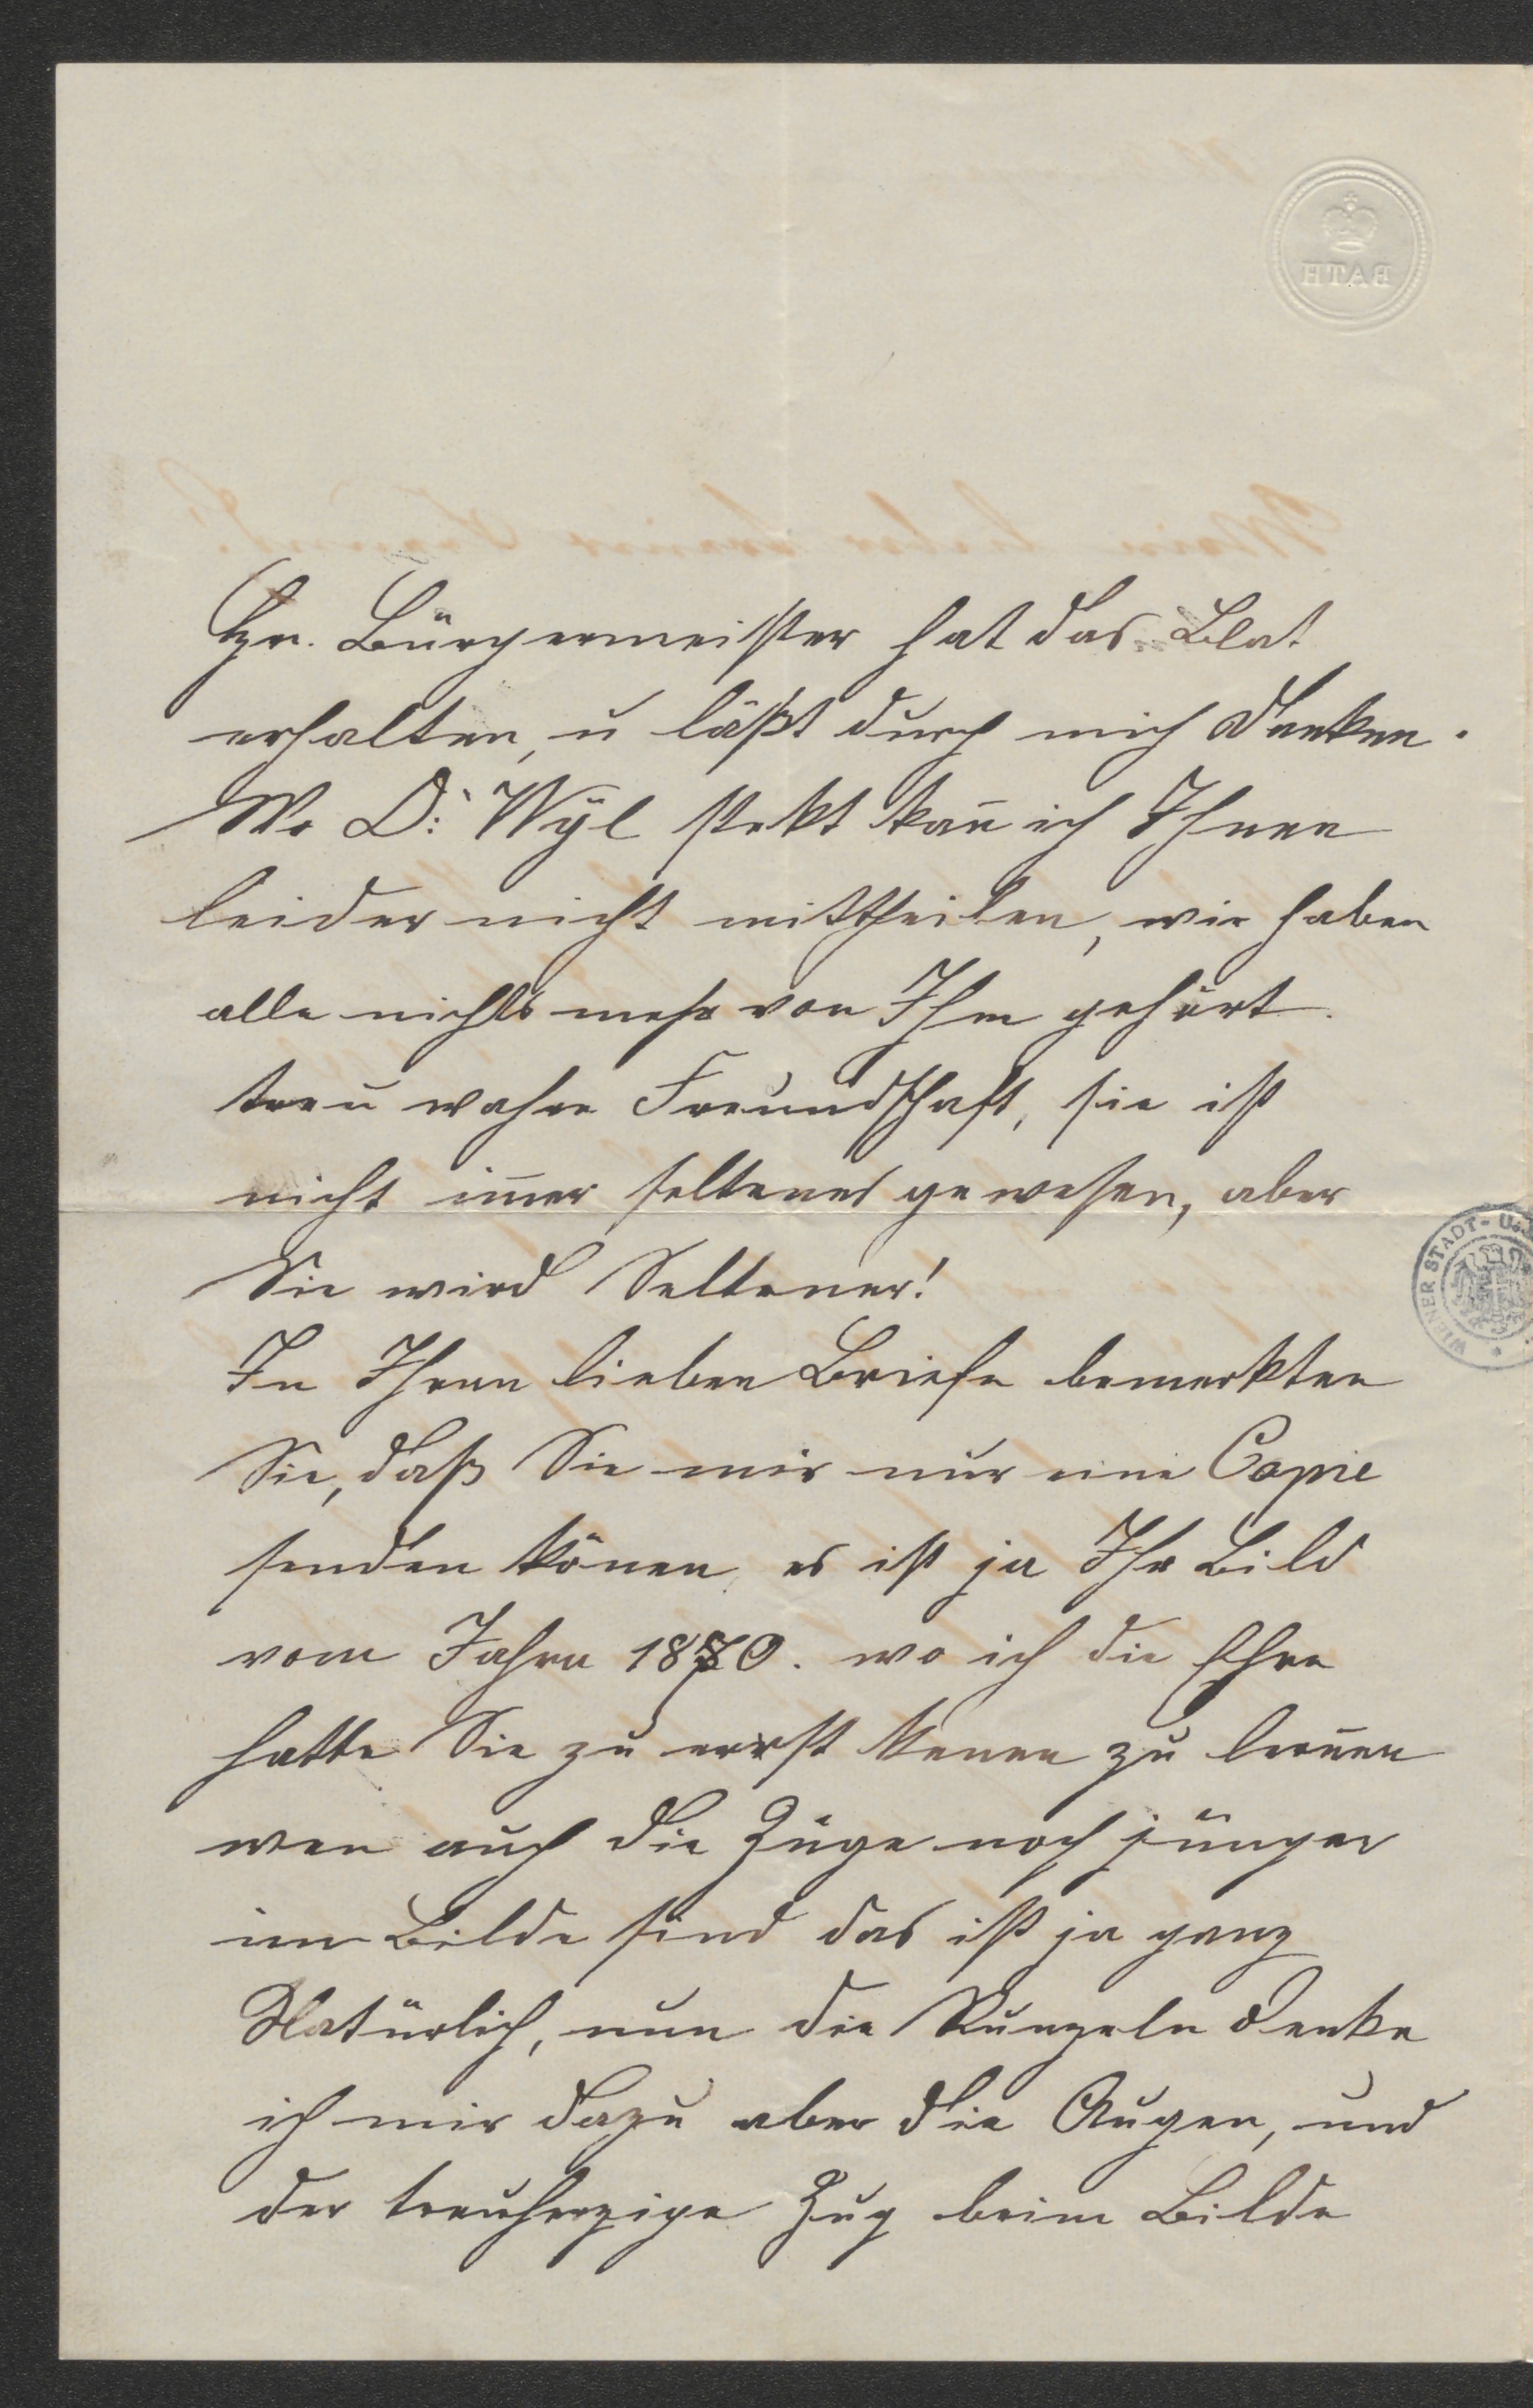 BATH
Hr. Bürgermeister hat das Blat
erhalten, u läßt durch mich danken.
Wo D: Wÿl stekt kan̄ ich Ihnen
leider nicht mittheilen, wir haben
alle nichts mehr von Ihm gehört.
treu wahre Freundschaft, sie ist
nicht im̄er seltener gewesen, aber
Sie wird Seltener!
In Ihren lieben Briefe bemerkten
Sie, daß Sie mir nur eine Copie
senden könen, es ist ja Ihr Bild
vom Jahre 1870. wo ich die Ehre
hatte Sie zu errst kenen zu lernen
wen auch die Züge noch jünger
im Bilde sind das ist ja ganz
Natürlich, nun die Runzeln denke
ich mir dazu aber die Augen, und
der treuherzige Zug beim Bilde
WIENER STADT- U.